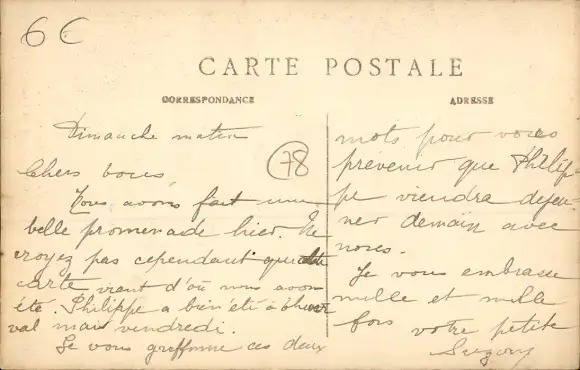 6 €
CARTE POSTALE
CORRESPONDANCE
ADRESSE
78
Dimanche matin
Chers vous
Nous avons fait une
belle promenade hier. Ne
croyez pas cependant que cette
carte vient d'où nous avons
été. Philippe a bien été à cheval
val mais vendredi.
Je vous griffonne ces deux
mots pour vous
prévenir que Philip-
pe viendra dejeu-
ner demain avec
nous.
Je vous embrasse
mille et mille
fois votre petite